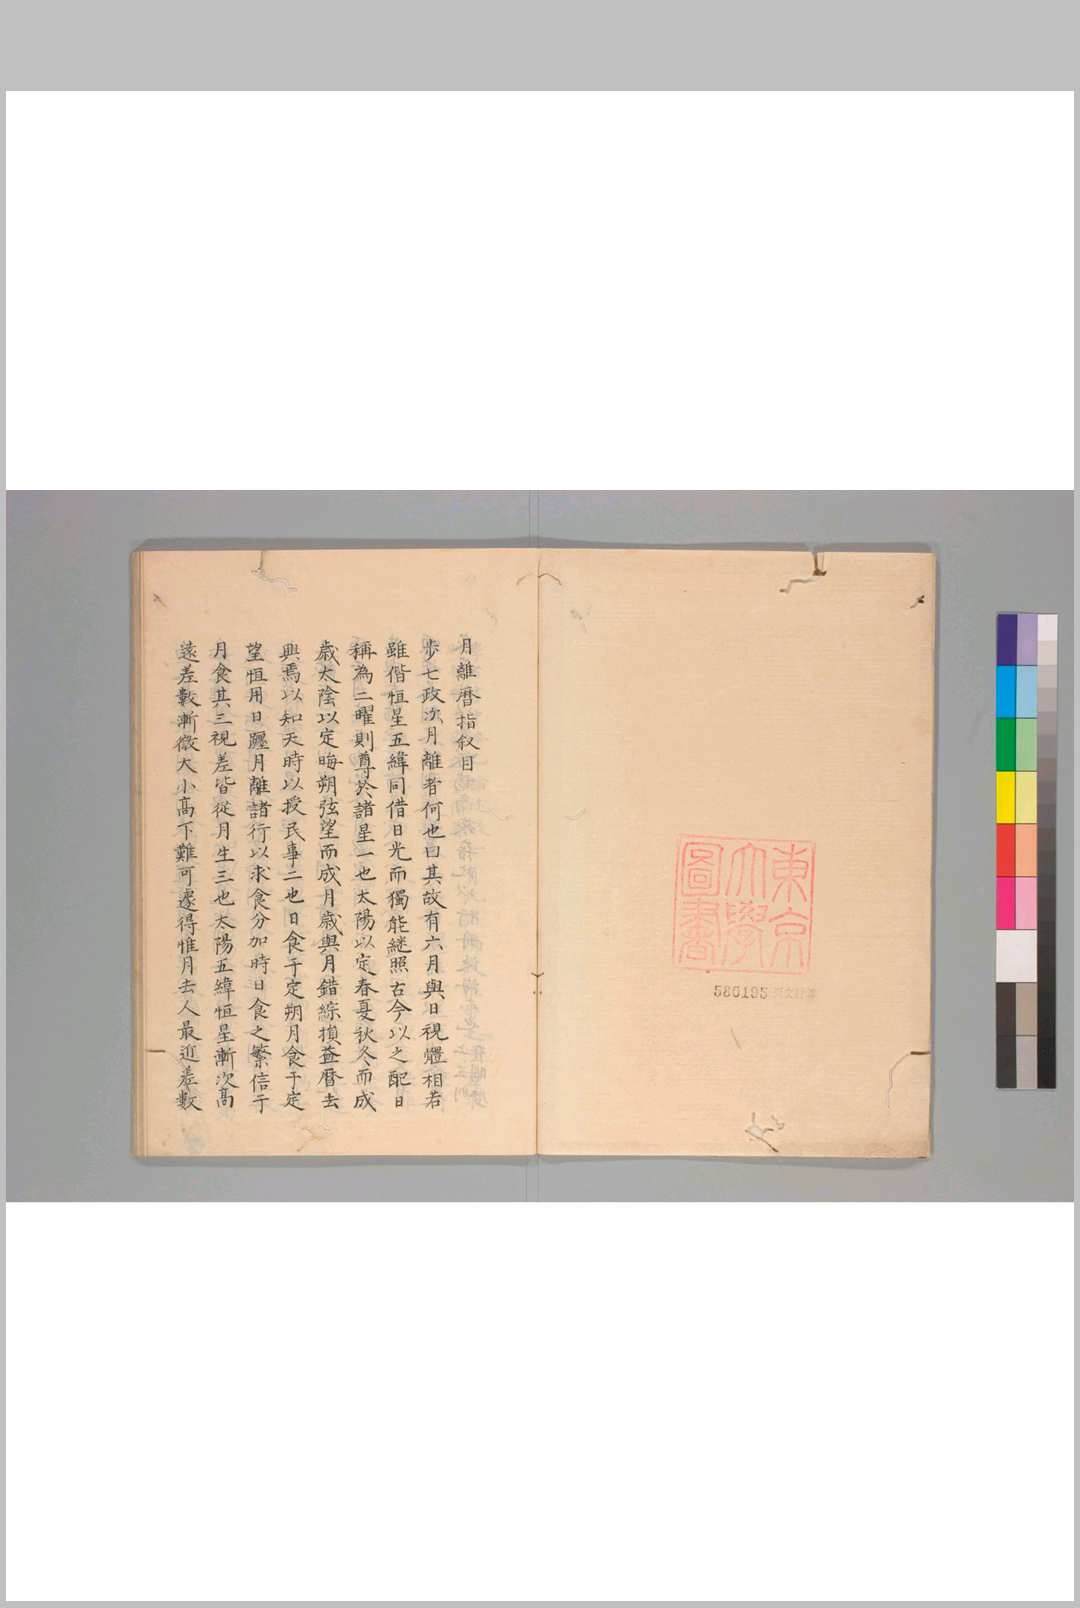 東京
大學
圖書
586195
月離曆指叙目
步七政次月離者何也曰其故有六月與日視體相若
雖偕恒星五緯同借日光而獨能継照古今以之配日
稱為二曜則尊於諸星一也太陽以定春夏秋冬而成
歲太陰以定晦朔弦望而成月歲與月錯綜損益曆法
興焉以知天時以授民事二也日食于定朔月食于定
望恒用日躔月離諸行以求食分加時日食之繁信于
月食其三視差皆從月生三也太陽五緯恒星漸次高
遠差數漸微大小高下難可遽得惟月去人最近差數